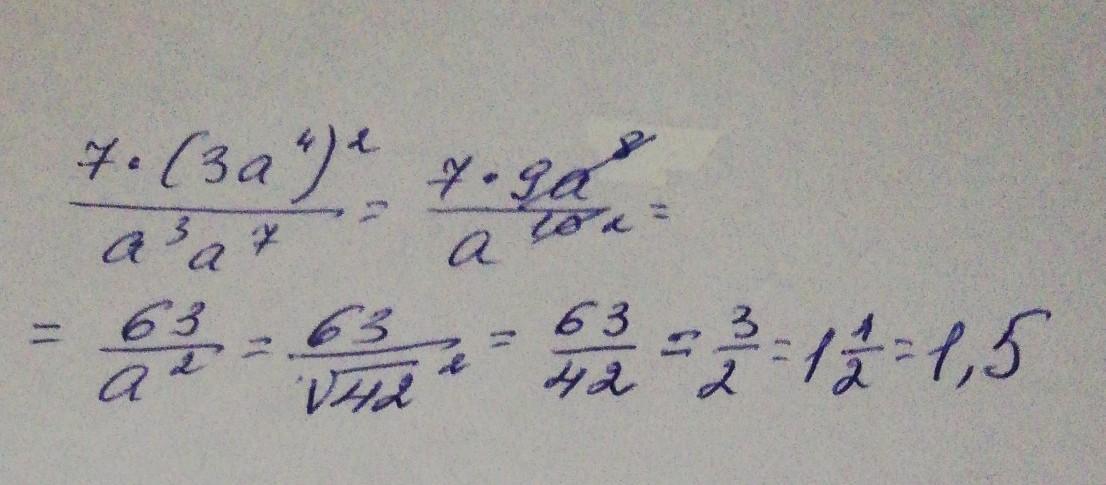 7·(3a⁴)²/a³a⁷ = 7·9a⁸/a¹⁰ ² =
= 63/a² = 63/√42² = 63/42 = 3/2 = 1 1/2 = 1,5